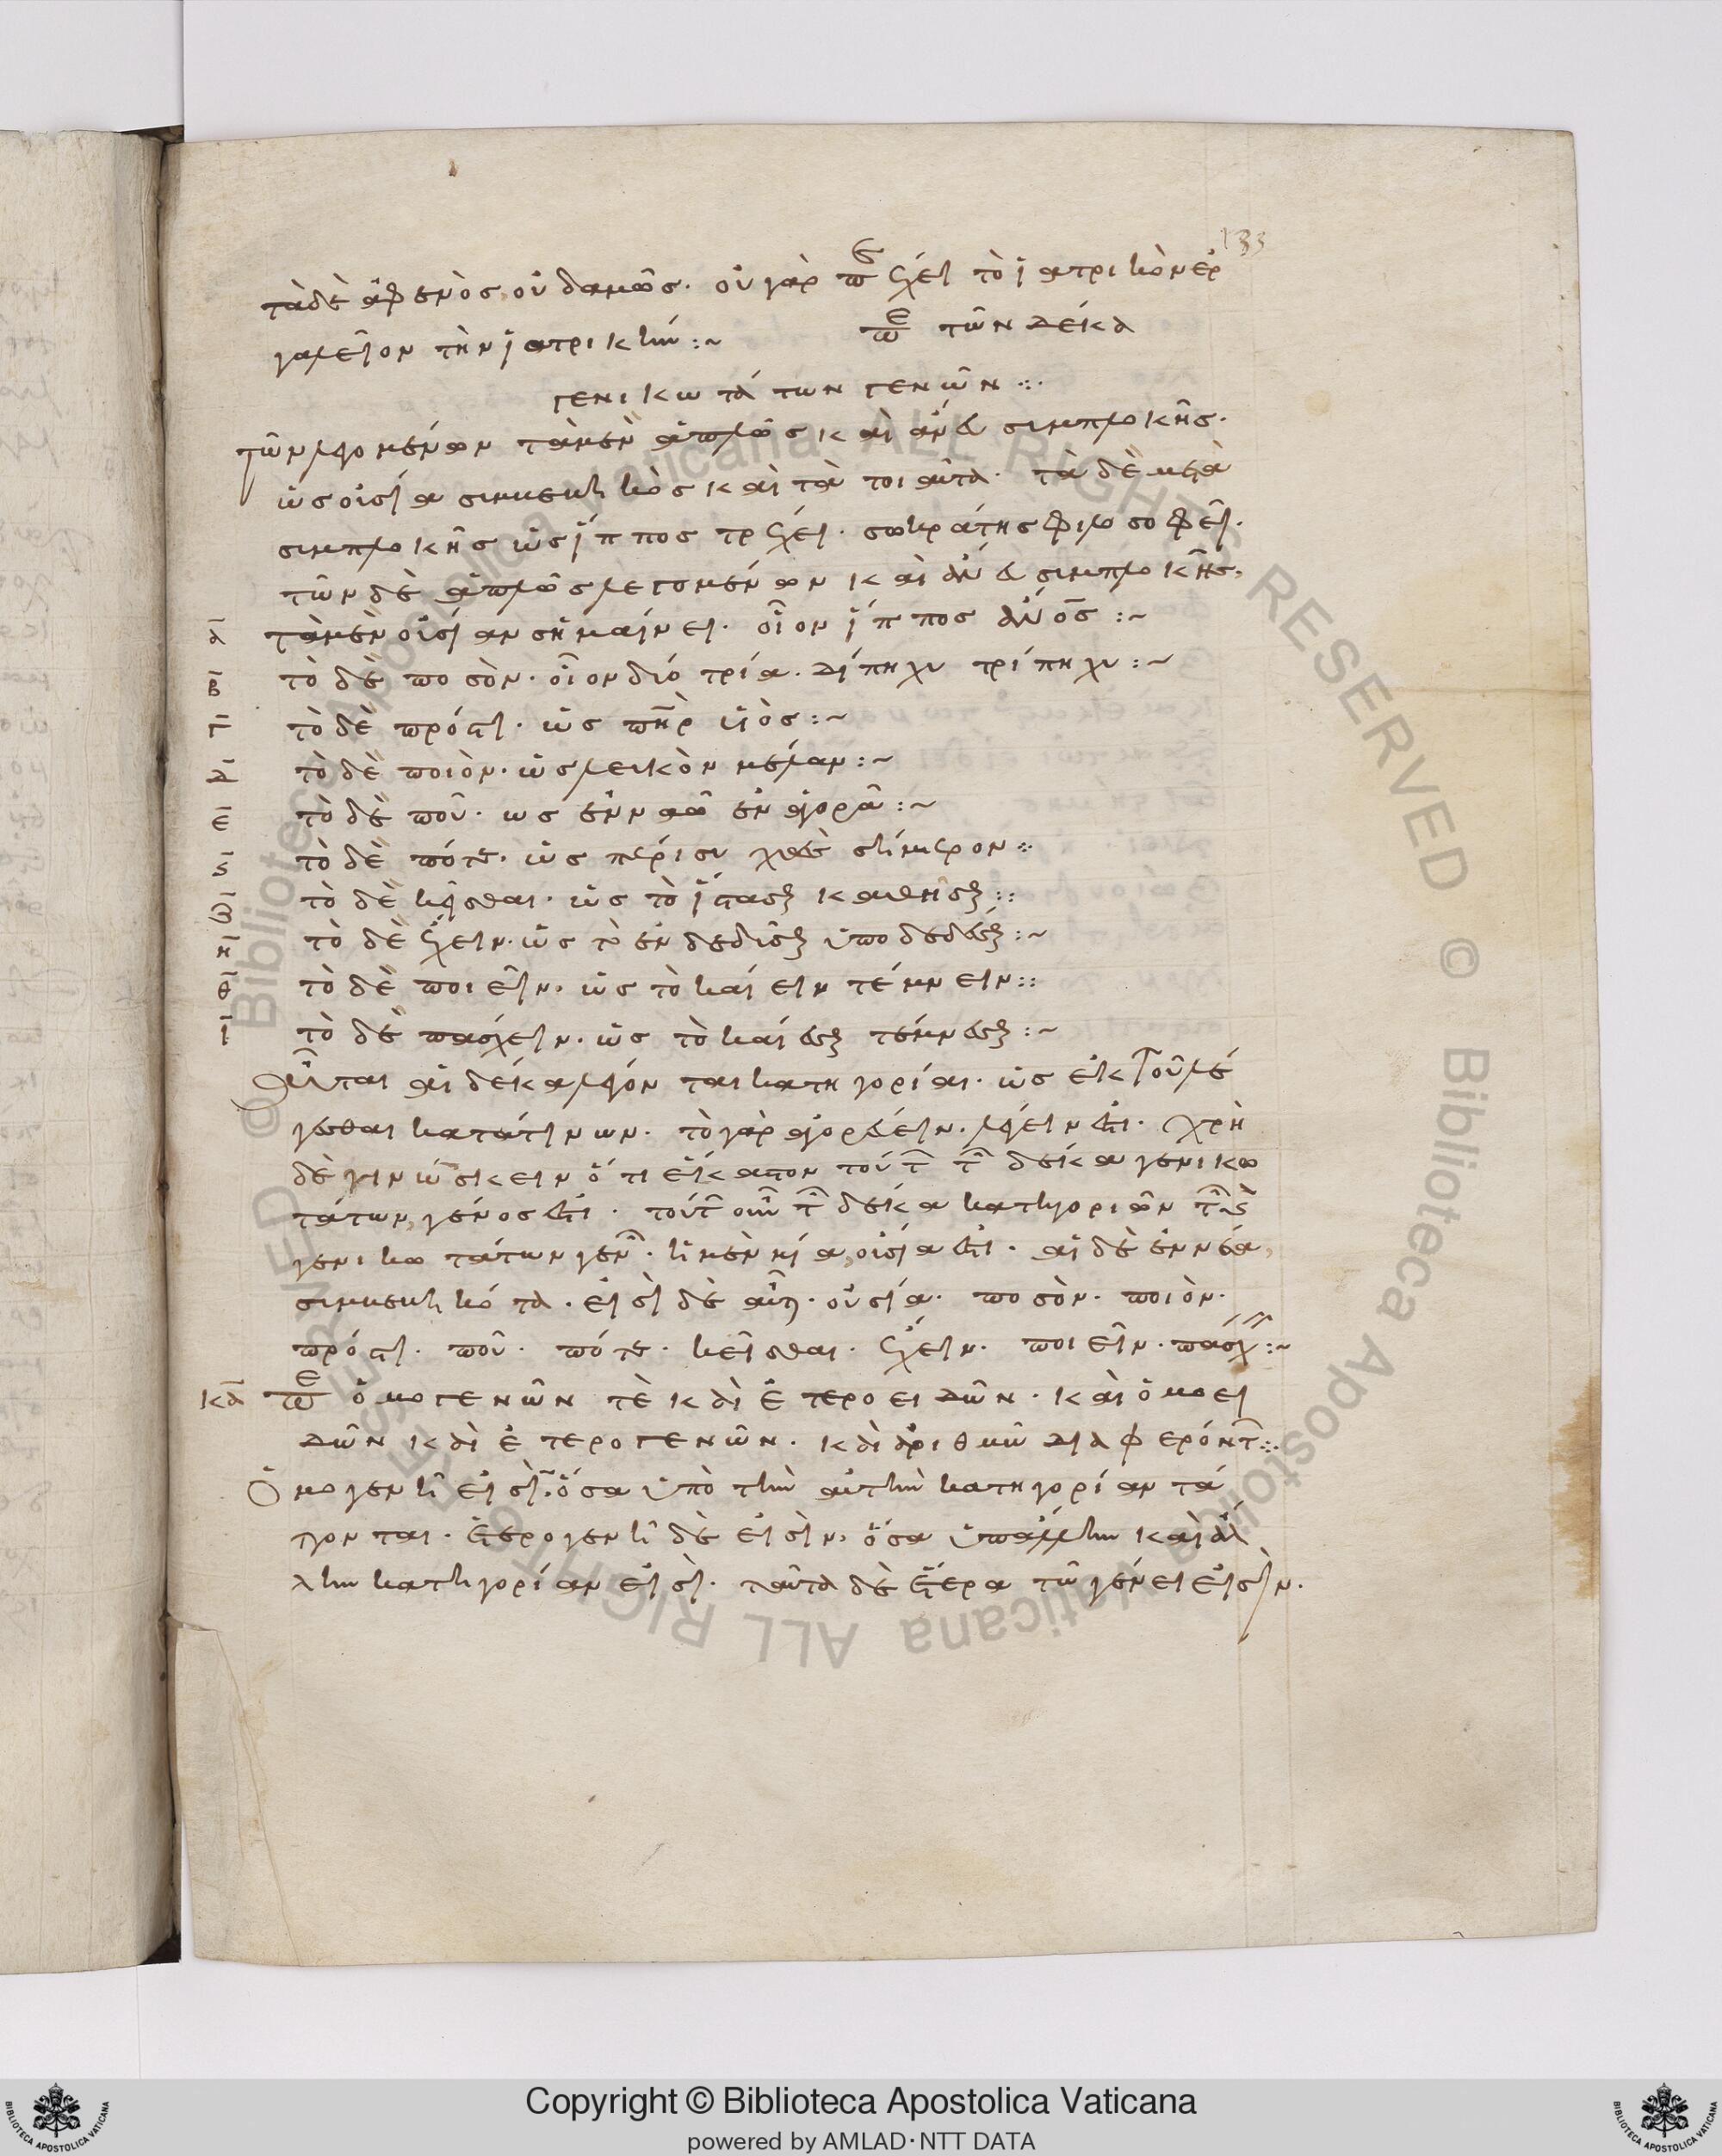 133
τὰ δὲ ἀφενὸς, οὐδαμῶς. οὐ γὰρ περιέχει τὸ ἰατρικὸν ἐρ
γαλεῖον τὴν ἰατρικήν :~ πε τῶν δέκα
γενικωτάτων γενῶν :.
τῶν λεγομένων τὰ μὲν ἁπλῶς καὶ ἄνευ συμπλοκῆς.
ὡς οὐσία συμβεβηκὸς καὶ τὰ τοιαῦτα. τὰ δὲ μετὰ
συμπλοκῆς ὡς ἵππος τρέχει. σωκράτης φιλοσοφεῖ.
τῶν δὲ ἁπλῶς λεγομένων καὶ ἄνευ συμπλοκῆς,
α τὰ μὲν οὐσίαν σημαίνει. οἷον ἵππος ἄνος :~
β τὸ δὲ ποσὸν. οἷον δύο τρία. δίπηχυ τρίπηχυ :~
γ τὸ δὲ πρός τι. ὡς πηρ υἱὸς :~
δ τὸ δὲ ποιὸν. ὡς λευκὸν μέλαν :~
ε τὸ δὲ ποῦ. ως ἐν ναῶ ἐν ἀγορᾶ :~
ς τὸ δὲ πότε. ὡς πέρισυ χθὲς σήμερον :.
ζ τὸ δὲ κεῖσθαι. ὡς τὸ ἵστασθαι καθῆσθαι ::
η τὸ δὲ ἔχειν. ὡς τὸ ἐνδεδύσθαι ὑποδεδέσθαι :~
θ τὸ δὲ ποιεῖν. ὡς τὸ καίειν τέμνειν ::
ι τὸ δὲ πασχειν. ὡς τὸ καίεσθαι τέμνεσθαι :~
Αὗται αἱ δέκα λέγονται κατηγορίαι. ὡς ἐκ τοῦ λέ
γεσθαι κατά τινων. τὸ γὰρ ἀγορεύειν. λέγειν ἐστί. χρὴ
δὲ γινώσκειν ὅτι ἕκαστον τούτων τῶν δέκα γενικω
τάτων, γένος ἐστί. τούτων οὖν τῶν δέκα κατηγοριῶν τῶν ς
γενικωτάτων γενῶν. ἡ μὲν μία, οὐσία ἐστί. αἱ δὲ ἐννέα,
συμβεβηκότα. εἰσὶ δὲ αὗται. οὐσία. ποσὸν. ποιὸν.
πρός τι. ποῦ. πότε. κεῖσθαι. ἔχειν. ποιεῖν. πάσχειν :~
κα πε ὁμογενῶν τὲ καὶ ἑτεροειδῶν. καὶ ὁμοει
δῶν καὶ ἑτερογενῶν. καὶ ἀριθμῶ διαφερόντων :.
Ὁμογενῆ εἰσὶν. ὅσα ὑπὸ τὴν αὐτὴν κατηγορίαν τά
ττονται. ἑτερογενῆ δὲ εἰσὶν, ὅσα ὑπ ἄλλην καὶ ἄλ
λην κατηγορίαν εἰσὶ. ταῦτα δὲ ἕτερα τῶ γένει εἰσὶν.
Copyright © Biblioteca Apostolica Vaticana
powered by AMLAD·NTT DATA